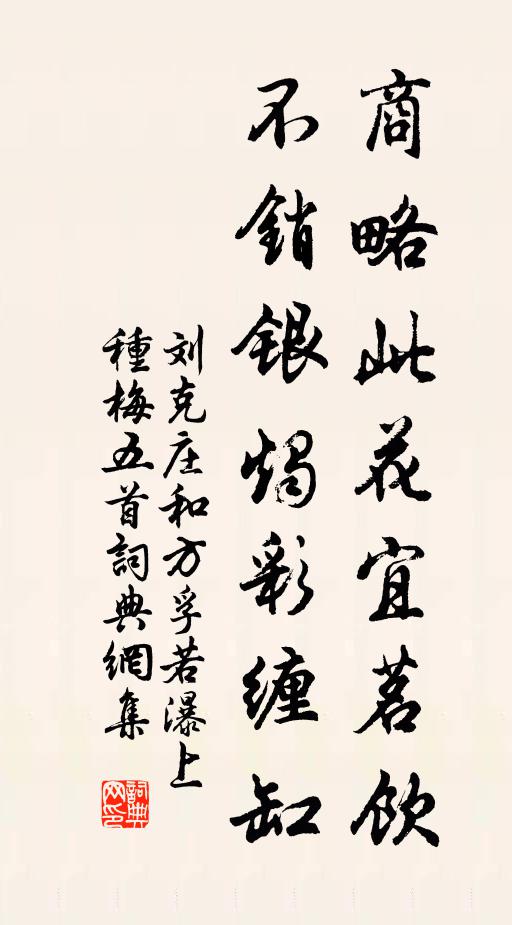 商略此花宜茗飲
不銷銀燭彩纏缸
刘克庄和方孚若瀑上
種梅五首詞典網集
詞典
网印